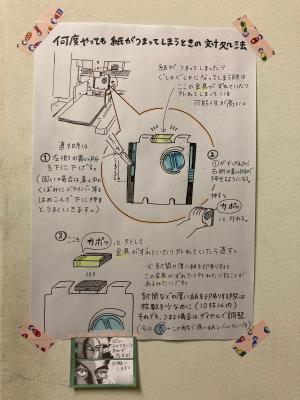 何度やっても紙がつまってしまうときの対処法
紙がつまってしまったり
ぐしゃぐしゃになってしまう時は
ここの金具がずれていたり
外れてしまっている
可能性が高い。
直す時は
① 右側の青い所
を下に下げる。
(固い場合は
くぼみにドライバー等を
はめこんで下に押す
とうまくいきます。)
②
①が下がったまま
右側の青い所が
押せるようになる。
押すと
カポッ
と外れる。
③ ここも カポッ と外して
金具がずれていたり外れていたら直す。
※ 封筒や厚い紙を印刷すると
この金具がずれたり外れたりすることが
あるみたいです。
封筒などの厚い紙を印刷する際は
枚数を少なめに(10枚以内)
それでも、つまる場合はダイヤルで調整